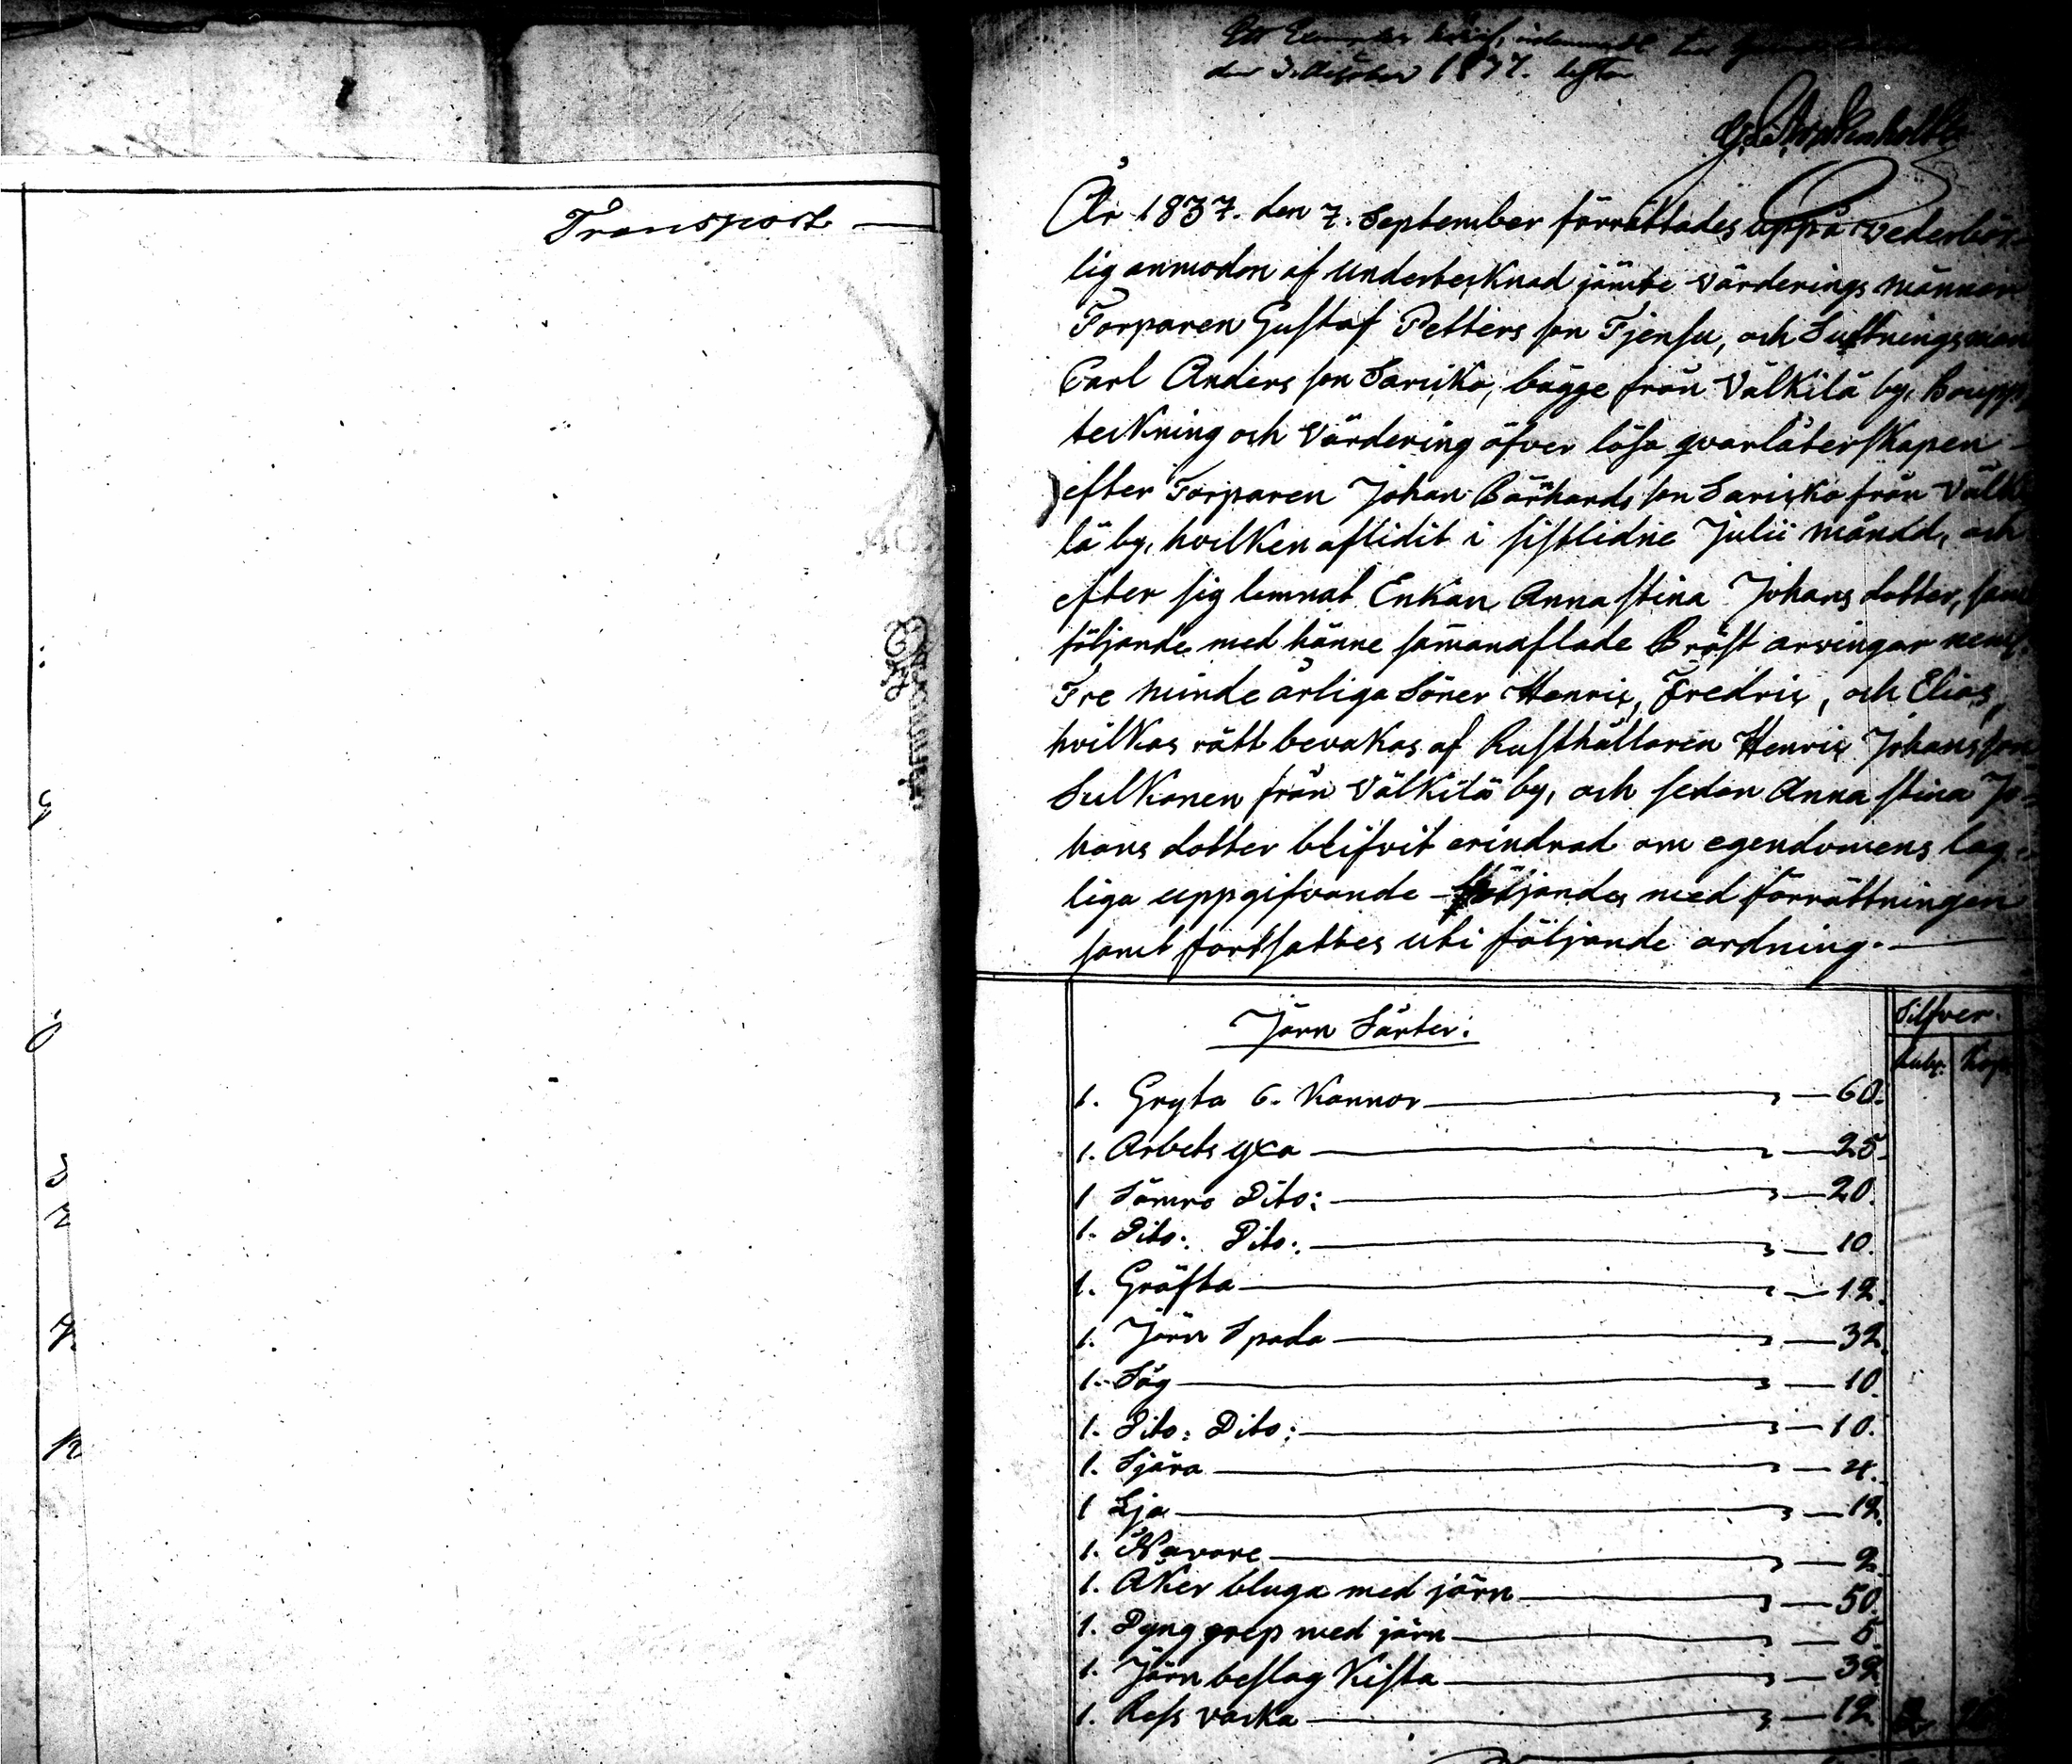 Transport
den 3. October 1837.
År 1837. den 7. September förrättades uppå vederbör-
lig anmodan af undertecknad jämte Värderings männen
Torparen Gustaf Petters son Tjensu, och
Carl Anders son Saricko, bägge från Välkilä by, Boupp-
teckning och Värdering öfver lösa qvarlåterskapen
efter Torparen Johan Bärnhards son Saricko från Välki
lä by, hvilken aflidit i sistlidne Julii månad, och
efter sig lemnat Enkan Anna Stina Johans dotter, samt
följande med hänne samanaflade Bröst arvingar neml.
Tre minde årliga Söner Henric, Fredric, och Elias,
hvilkas rätt bevakas af Rusthållaren Henric Johans son
Sulkanen från Välkilä by, och sedan Anna Stina Jo-
hans dotter blifvit erindrad om egendomens lag-
liga uppgifvande följandes med förrättningen
samt fortsattes uti följande ordning.
Järn Särter:
Silfver.
Rub. Kop.
1. Gryta 6. Kannor 60.
1. Arbets yxa 25.
1 Sämre Dito: 20.
1. Dito: Dito: 10.
1. Gräfta 12.
1. Järn Spada 32.
1. Såg 10.
1. Dito: Dito: 10.
1. Sjära 4.
1 Lja 12.
1. Navare 2.
1. Åker bluga med järn 50.
1. Dyng grep med järn 5.
1. Järn beslag Kista 32.
1. 12. 2